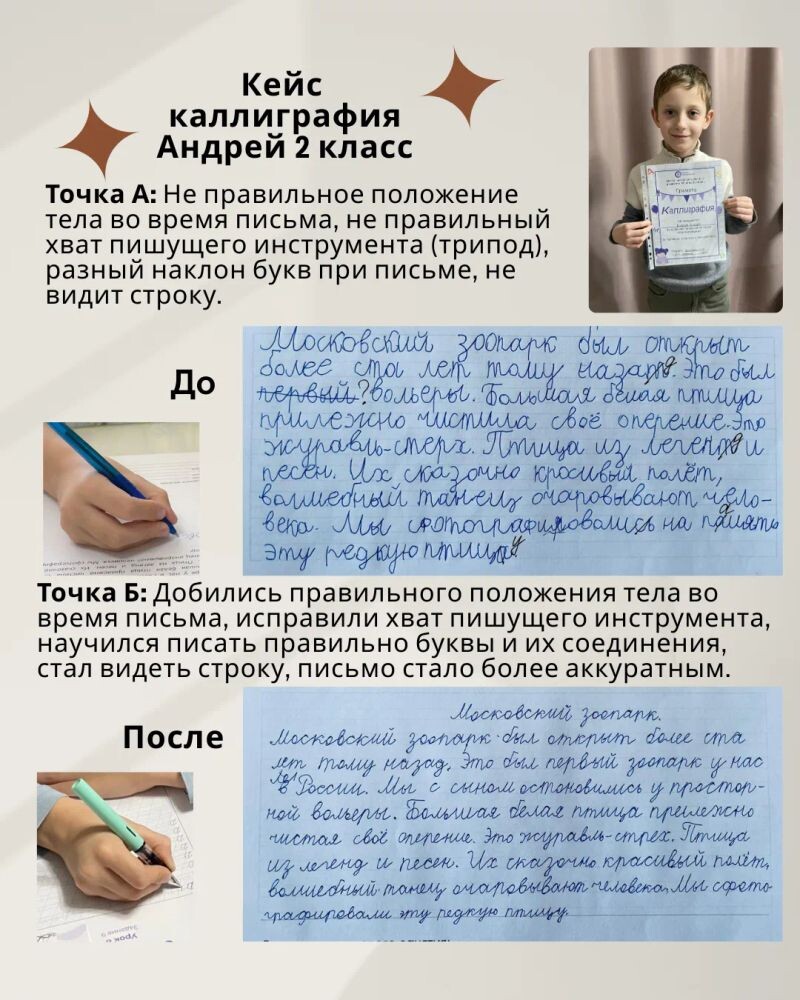 Кейс
каллиграфия
Андрей 2 класс
Точка А: Не правильное положение
тела во время письма, не правильный
хват пишущего инструмента (трипод),
разный наклон букв при письме, не
видит строку.
Грамота
Каллиграфия
До
Московский зоопарк был открыт
более ста лет тому назад. Это был
первый? вольеры. Большая белая птица
прилежно чистила своё оперение. Это
журавль-стерх. Птица из легенд и
песен. Их сказочно красивый полёт,
волшебный танец очаровывают чело-
века. Мы сфотографировались на память
эту редкую птицу
Точка Б: Добились правильного положения тела во
время письма, исправили хват пишущего инструмента,
научился писать правильно буквы и их соединения,
стал видеть строку, письмо стало более аккуратным.
После
Московский зоопарк.
Московский зоопарк был открыт более ста
лет тому назад. Это был первый зоопарк у нас
в России. Мы с сыном остановились у простор-
ной вольеры. Большая белая птица прилежно
чистая своё оперение. Это журавль-стрех. Птица
из легенд и песен. Их сказочно красивый полёт,
волшебный танец очаровывают человека. Мы сфото
графировали эту редкую птицу.
Урок
Задание